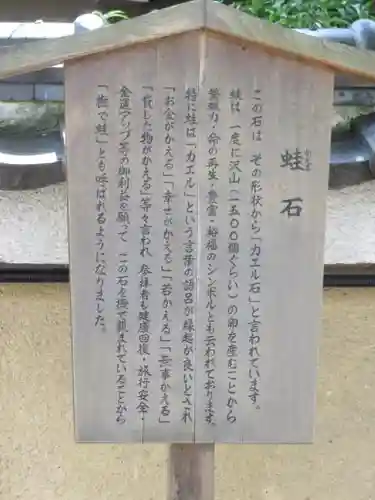 蛙石
この石は その形状から「カエル石」と言われています。
蛙は 一度に沢山（一五００個ぐらい）の卵を産むことから
繁殖力・命の再生・豊富・裕福のシンボルとも云われております。
特に蛙は「カエル」という言葉の語呂が縁起が良いとされ
「お金がかえる」「幸せがかえる」「若かえる」「無事かえる」
「貸した物がかえる」等々言われ 参拝者も健康回復・旅行安全・
金運アップ等の御利益を願って この石を撫で親まれていることから
「撫で蛙」とも呼ばれるようになりました。